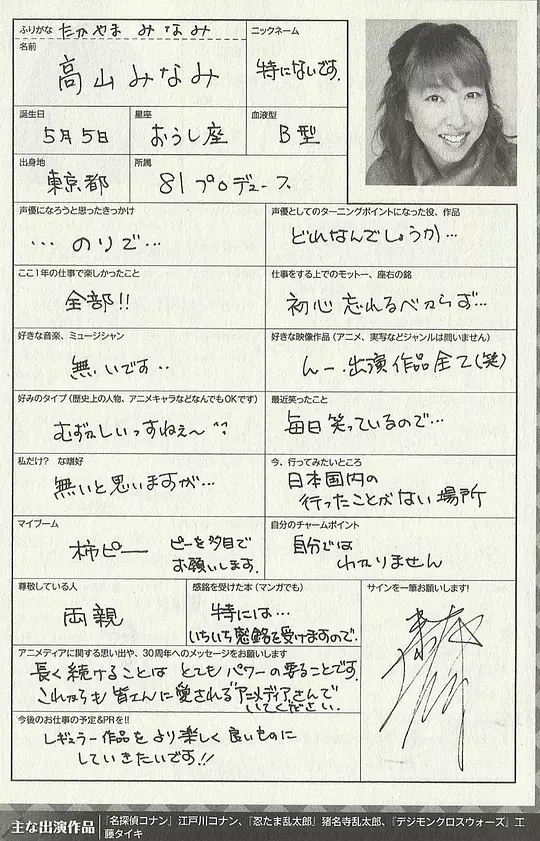 ふりがな たかやま みなみ
名前
高山みなみ
ニックネーム
特にないです.
誕生日
5月5日
星座
おうし座
血液型
B型
出身地
東京都
所属
81プロデュース
声優になろうと思ったきっかけ
…のりで…
声優としてのターニングポイントになった役、作品
どれなんでしょうか…
ここ1年の仕事で楽しかったこと
全部!!
仕事をする上でのモットー、座右の銘
初心忘れるべからず…
好きな音楽、ミュージシャン
無いです‥
好きな映像作品(アニメ、実写などジャンルは問いません)
んー.出演作品全て(笑)
好みのタイプ(歴史上の人物、アニメキャラなどなんでもOKです)
むずかしいっすねぇ〜
最近笑ったこと
毎日笑っているので…
私だけ? な嗜好
無いと思いますが…
今、行ってみたいところ
日本国内の
行ったことがない場所
マイブーム
柿ピー ピーを多目で
お願いします.
自分のチャームポイント
自分では
わかりません
尊敬している人
両親
感銘を受けた本(マンガでも)
特には…
いちいち感銘を受けますので.
サインを一筆お願いします!
アニメディアに関する思い出や、30周年へのメッセージをお願いします
長く続けることは とてもパワーの要ることです.
これからも皆さんに愛される"アニメディア"さんで
いてください.
今後のお仕事の予定&PRを!!
レギュラー作品をより楽しく良いものに
していきたいです!!
主な出演作品
『名探偵コナン』江戸川コナン、『忍たま乱太郎』猪名寺乱太郎、『デジモンクロスウォーズ』工
藤タイキ